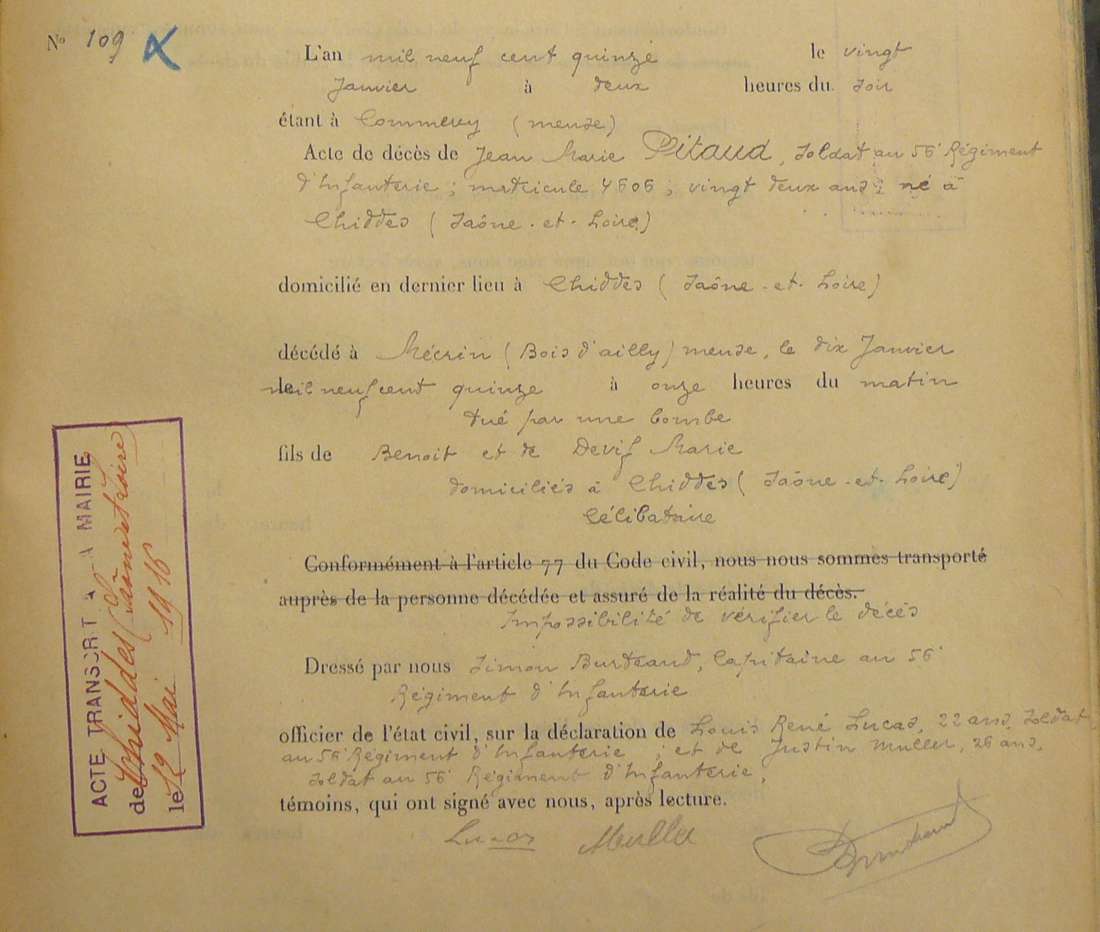 N° 109
L'an mil neuf cent quinze le vingt
Janvier à deux heures du soir
étant à Commercy (meuse)
Acte de décès de Jean Marie Pitaud, soldat au 56e Régiment
d'Infanterie ; matricule 4606 ; vingt deux ans ; né à
Chiddes (Saône-et-Loire)
domicilié en dernier lieu à Chiddes (Saône-et-Loire)
décédé à Mécrin (Bois d'ailly) meuse, le dix Janvier
le mil neuf cent quinze à onze heures du matin
tué par une bombe
fils de Benoit et de Marie
domiciliés à Chiddes (Saône-et-Loire)
Célibataire
Conformément à l'article 77 du Code civil, nous nous sommes transporté
auprès de la personne décédée et assuré de la réalité du décès.
Impossibilité de vérifier le décés
Dressé par nous Simon Burteaud, Capitaine au 56e
Régiment d'Infanterie
officier de l'état civil, sur la déclaration de Louis René Lucas, 22 ans, soldat
au 56e Régiment d'Infanterie ; et de Justin Muller, 26 ans,
soldat au 56e Régiment d'Infanterie,
témoins, qui ont signé avec nous, après lecture.
Lucas Muller
ACTE TRANSCRIT A LA MAIRIE
de Chiddes (Saône et Loire)
le 12 Mai 1916